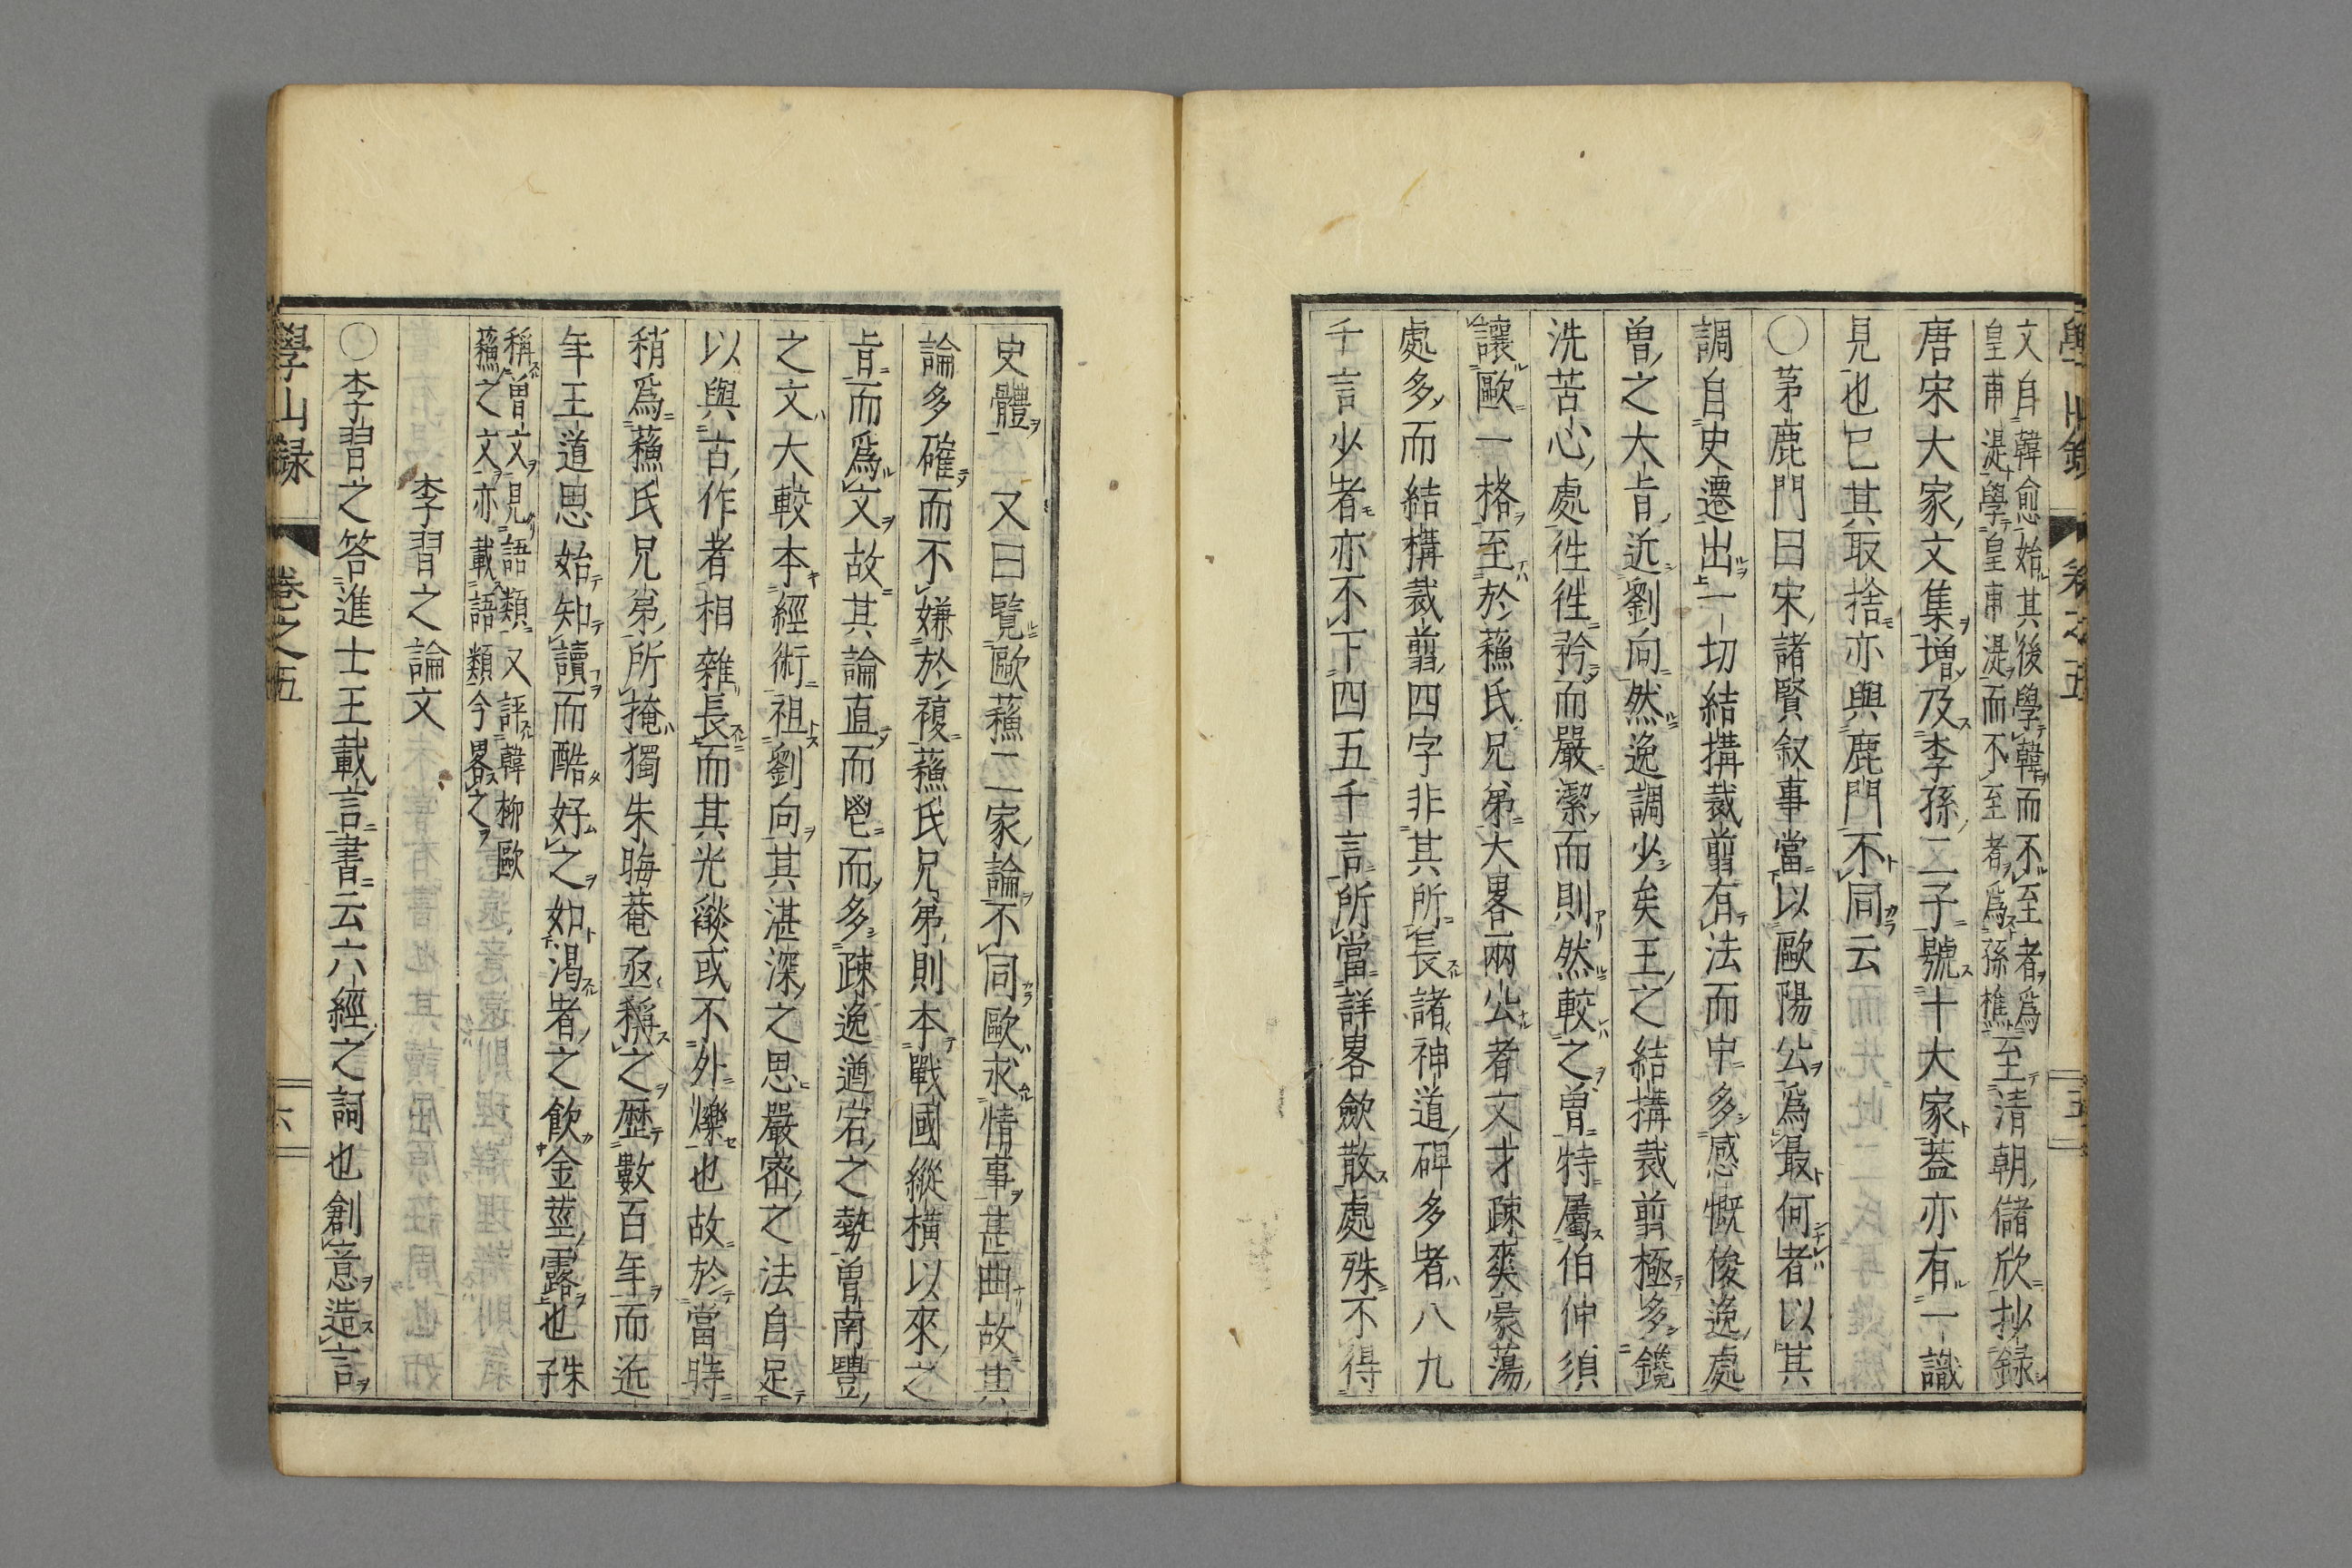 學山録 卷之五 五
文自韓愈始其後學韓而不至者爲
皇甫湜學皇甫湜而不至者爲孫樵至清朝儲欣抄録
唐宋大家文集増及李孫二子號十大家葢亦有一識
見也已其取捨亦與鹿門不同云
○茅鹿門曰宋諸賢叙事當以歐陽公爲最何者以其
調自史遷出一切結搆裁剪有法而中多感慨俊逸處
曽之大旨近劉向然逸調少矣王之結搆裁剪極多鑱
洗苦心處徃徃矜而嚴潔而則然較之曽特屬伯仲須
讓歐一格至於蘓氏兄弟大畧兩公者文才疎爽豪蕩
處多而結構裁剪四字非其所長諸神道碑多者八九
千言少者亦不下四五千言所當詳畧歛散處殊不得
史體 又曰覽歐蘓二家論不同歐求情事甚曲故其
論多確而不嫌於複蘓氏兄弟則本戰國縱横以來之
旨而爲文故其論直而鬯而多疎逸遒宕之勢曽南豐
之文大較本經術祖劉向其湛深之思嚴宻之法自足
以與古作者相雜長而其光燄或不外爍也故於當時
稍爲蘓氏兄弟所掩獨朱晦菴亟稱之歴數百年而近
年王道思始知讀而酷好之如渇者之飲金莖露也 朱子
稱曽文見語類又評韓柳歐
蘓之文亦載語類今畧之
李習之論文
○李習之答進士王載言書云六經之詞也創意造言
學山録 卷之五 六